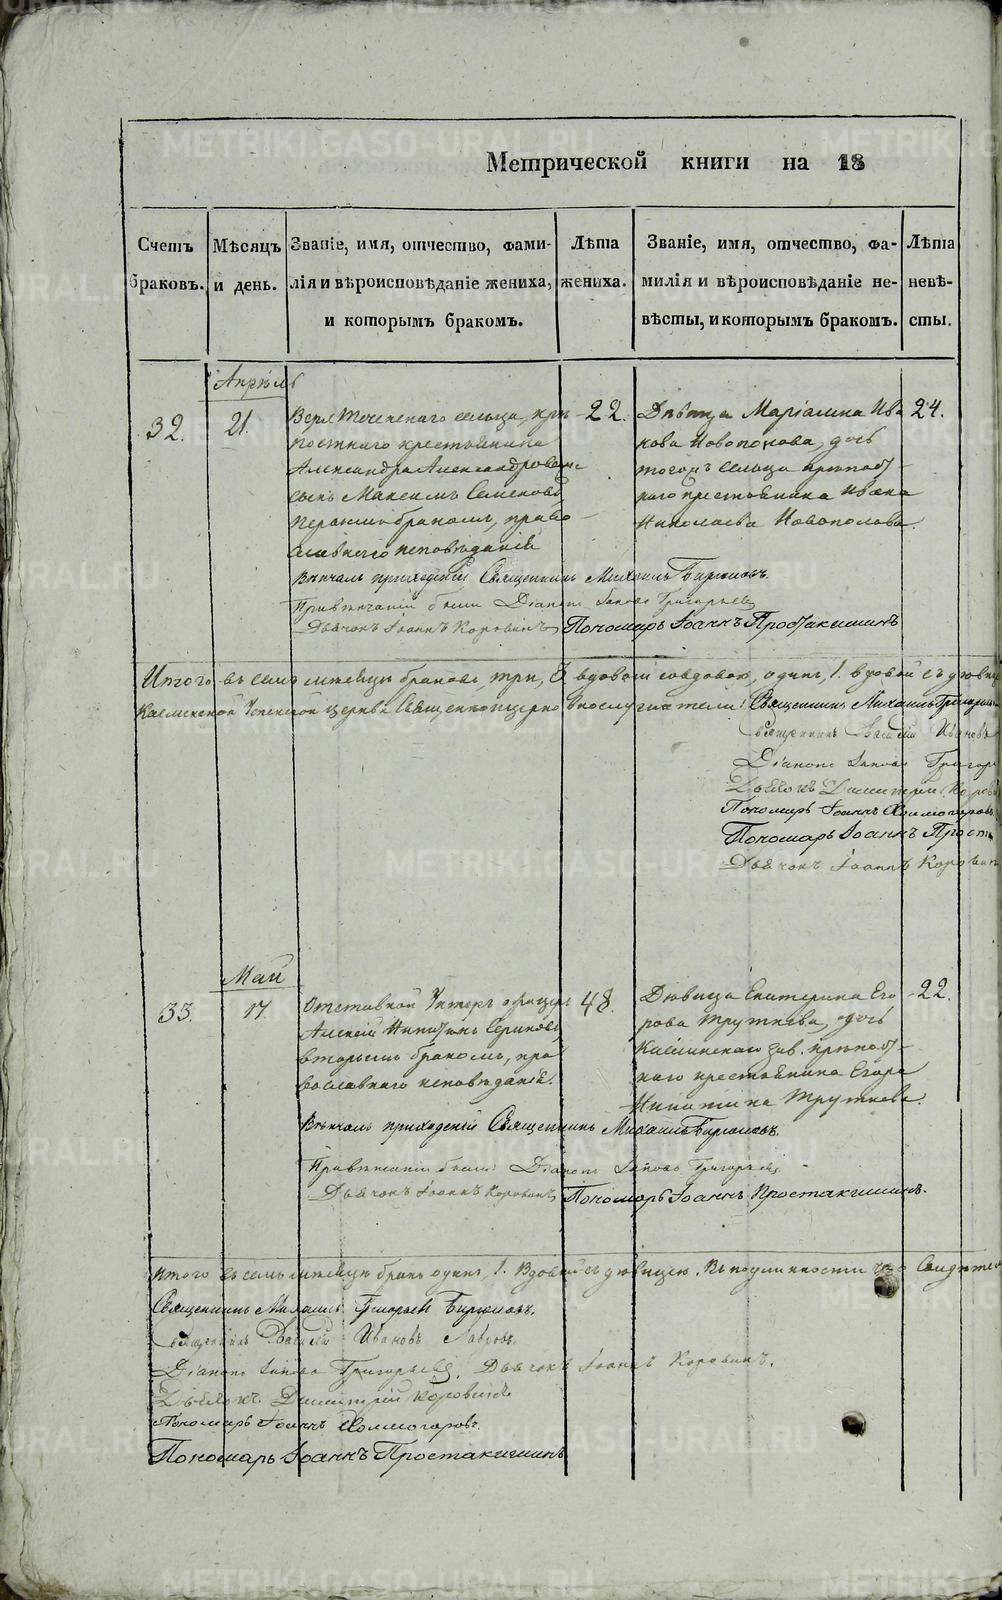 Метрической книги на 18
Счетъ браковъ.
Мѣсяцъ и день.
Званіе, имя, отчество, фами-
лія и вѣроисповѣданіе жениха,
и которымъ бракомъ.
Лѣта
жениха.
Званіе, имя, отчество, фа-
милія и вѣроисповѣданіе не-
вѣсты, и которымъ бракомъ.
Лѣта
невѣ-
сты.
Апрѣль
32.
21.
сельца, крѣ
постнаго крестьянина
Александра Александрова
сынъ Максимъ Семеновъ
первымъ бракомъ, право
славнаго исповѣданія
22.
Дѣвица Маріамна Ива
нова Новополова, дочь
тогожъ сельца крѣпост-
наго крестьянина Ивана
Николаева Новополова.
24.
Вѣнчалъ приходскій Священникъ Михаилъ Бирюковъ.
При вѣнчаніи были Діаконъ Іаковъ Григорьевъ
Дьячокъ Іоаннъ Коровинъ Пономарь Іоаннъ Простакишинъ
Итого въ семъ мѣсяцѣ браковъ три, 3 вдовой со вдовою, одинъ, 1. вдовой съ дѣвиц
церкви Священноцерковнослужители: Священникъ Михаилъ Григорьевъ
Священникъ Василій Ивановъ
Діаконъ Іаковъ Григор
Дьячокъ Димитрій Коров
Пономарь Іоаннъ Холмогоровъ
Пономарь Іоаннъ Прост
Дьячокъ Іоаннъ Коровин
Май
33.
17.
Отставной Унтеръ офицеръ
Алексій Никитинъ
вторымъ бракомъ, пра
вославнаго исповѣданія.
48.
Дѣвица Екатерина Его
рова Трутнева, дочь
Каслинскаго зав. крѣпост-
наго крестьянина Егора
Никитина Трутнева.
22.
Вѣнчалъ приходскій Священникъ Михаилъ Бирюковъ.
При вѣнчаніи были: Діаконъ Іаковъ Григорьевъ
Дьячокъ Іоаннъ Коровинъ, Пономарь Іоаннъ Простакишинъ.
Итого въ семъ мѣсяцѣ бракъ одинъ, 1. Вдовой съ дѣвицею. Въ подлинности сего Свидѣтел
Священникъ Михаилъ Григорьевъ Бирюковъ.
Священникъ Василій Ивановъ
Діаконъ Іаковъ Григорьевъ. Дьячокъ Іоаннъ Коровинъ.
Дьячокъ Димитрій Коровинъ
Пономарь Іоаннъ Холмогоровъ.
Пономарь Іоаннъ Простакишинъ
METRIKI.GASO-URAL.RU